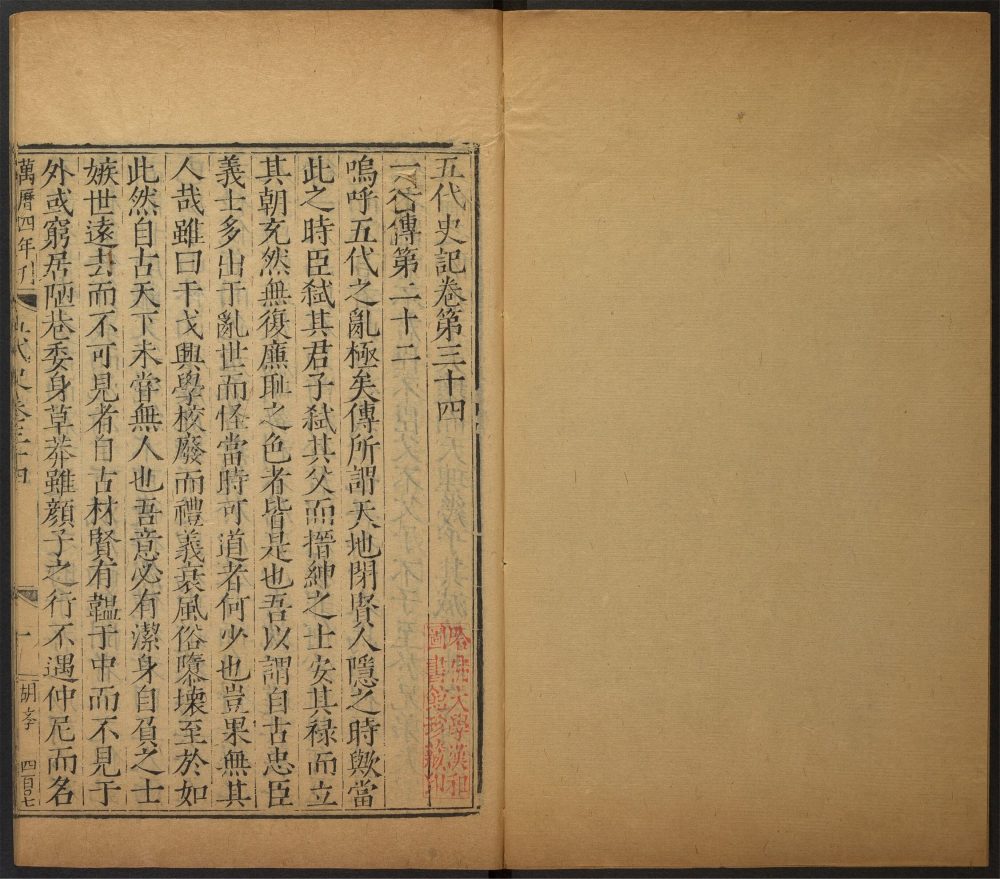 五代史記卷第三十四
一行傳第二十二
嗚呼五代之亂極矣傳所謂天地閉賢人隱之時歟當
此之時臣弑其君子弑其父而搢紳之士安其禄而立
其朝充然無復廉耻之色者皆是也吾以謂自古忠臣
義士多出于亂世而怪當時可道者何少也豈果無其
人哉雖曰干戈興學校廢而禮義衰風俗隳壊至於如
此然自古天下未甞無人也吾意必有潔身自負之士
嫉世遠去而不可見者自古材賢有韞于中而不見于
外或窮居陋巷委身草莽雖顔子之行不遇仲尼而名
萬曆四年刊
五代史卷三十四
一
胡孝
四百七
哈佛大學漢和
圖書館珍藏印